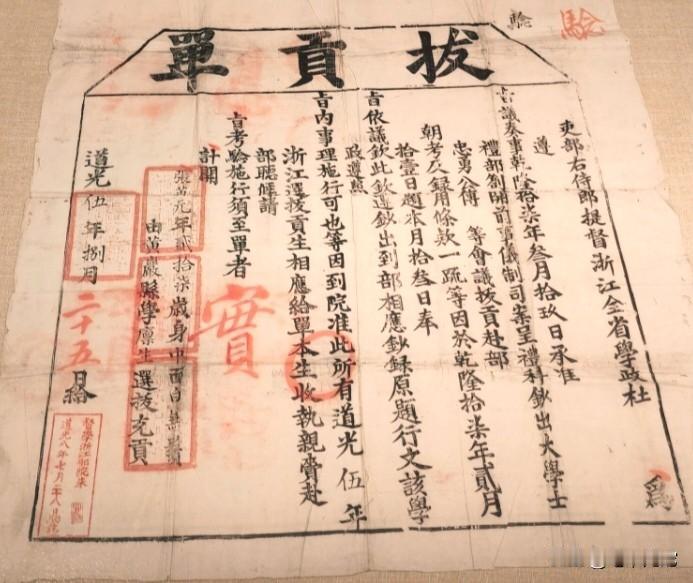 驗
驗
拔貢單
吏部右侍郎提督浙江全省學政杜
爲
遵
旨議奏事乾隆拾柒年叁月拾玖日承准
禮部劄開前事儀制司案呈禮科鈔出大學士
忠勇公傅 等會議拔貢赴部
朝考入錄用條款一疏等因於乾隆拾柒年貳月
拾壹日題本月拾叁日奉
旨依議欽此欽遵鈔出到部相應鈔錄原題行文該學
政遵照
旨內事理施行可也等因到院准此所有道光伍年
浙江選拔貢生相應給單本生收執親齎赴
部聽候請
旨考驗施行須至單者
計開
張 元年貳拾柒歲身中面白無鬚
由黃巖縣學廩生選拔充貢
實
道光伍年捌月二十五日給
道光八年七月二十八日